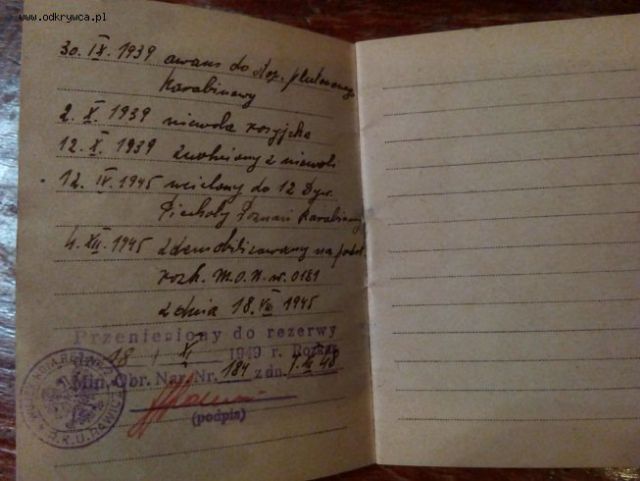 www.odkrywca.pl
30. IX. 1939 awans do stop. plutonowego
Karabinowy
2. X. 1939 niewola rosyjska
12. X. 1939 zwolniony z niewoli
12. IV. 1945 wcielony do 12 Dyw.
Piechoty Poznań Karabinowy
4. XII. 1945 zdemobilizowany na podst.
rozk. M.O.N. nr. 0181
z dnia 18. VIII 1945
Przeniesiony do rezerwy
18 XI 1949 r. Rozkaz
Min. Obr. Nar. Nr. 184 z dn.
(podpis)
R.K.U. RAWICZ